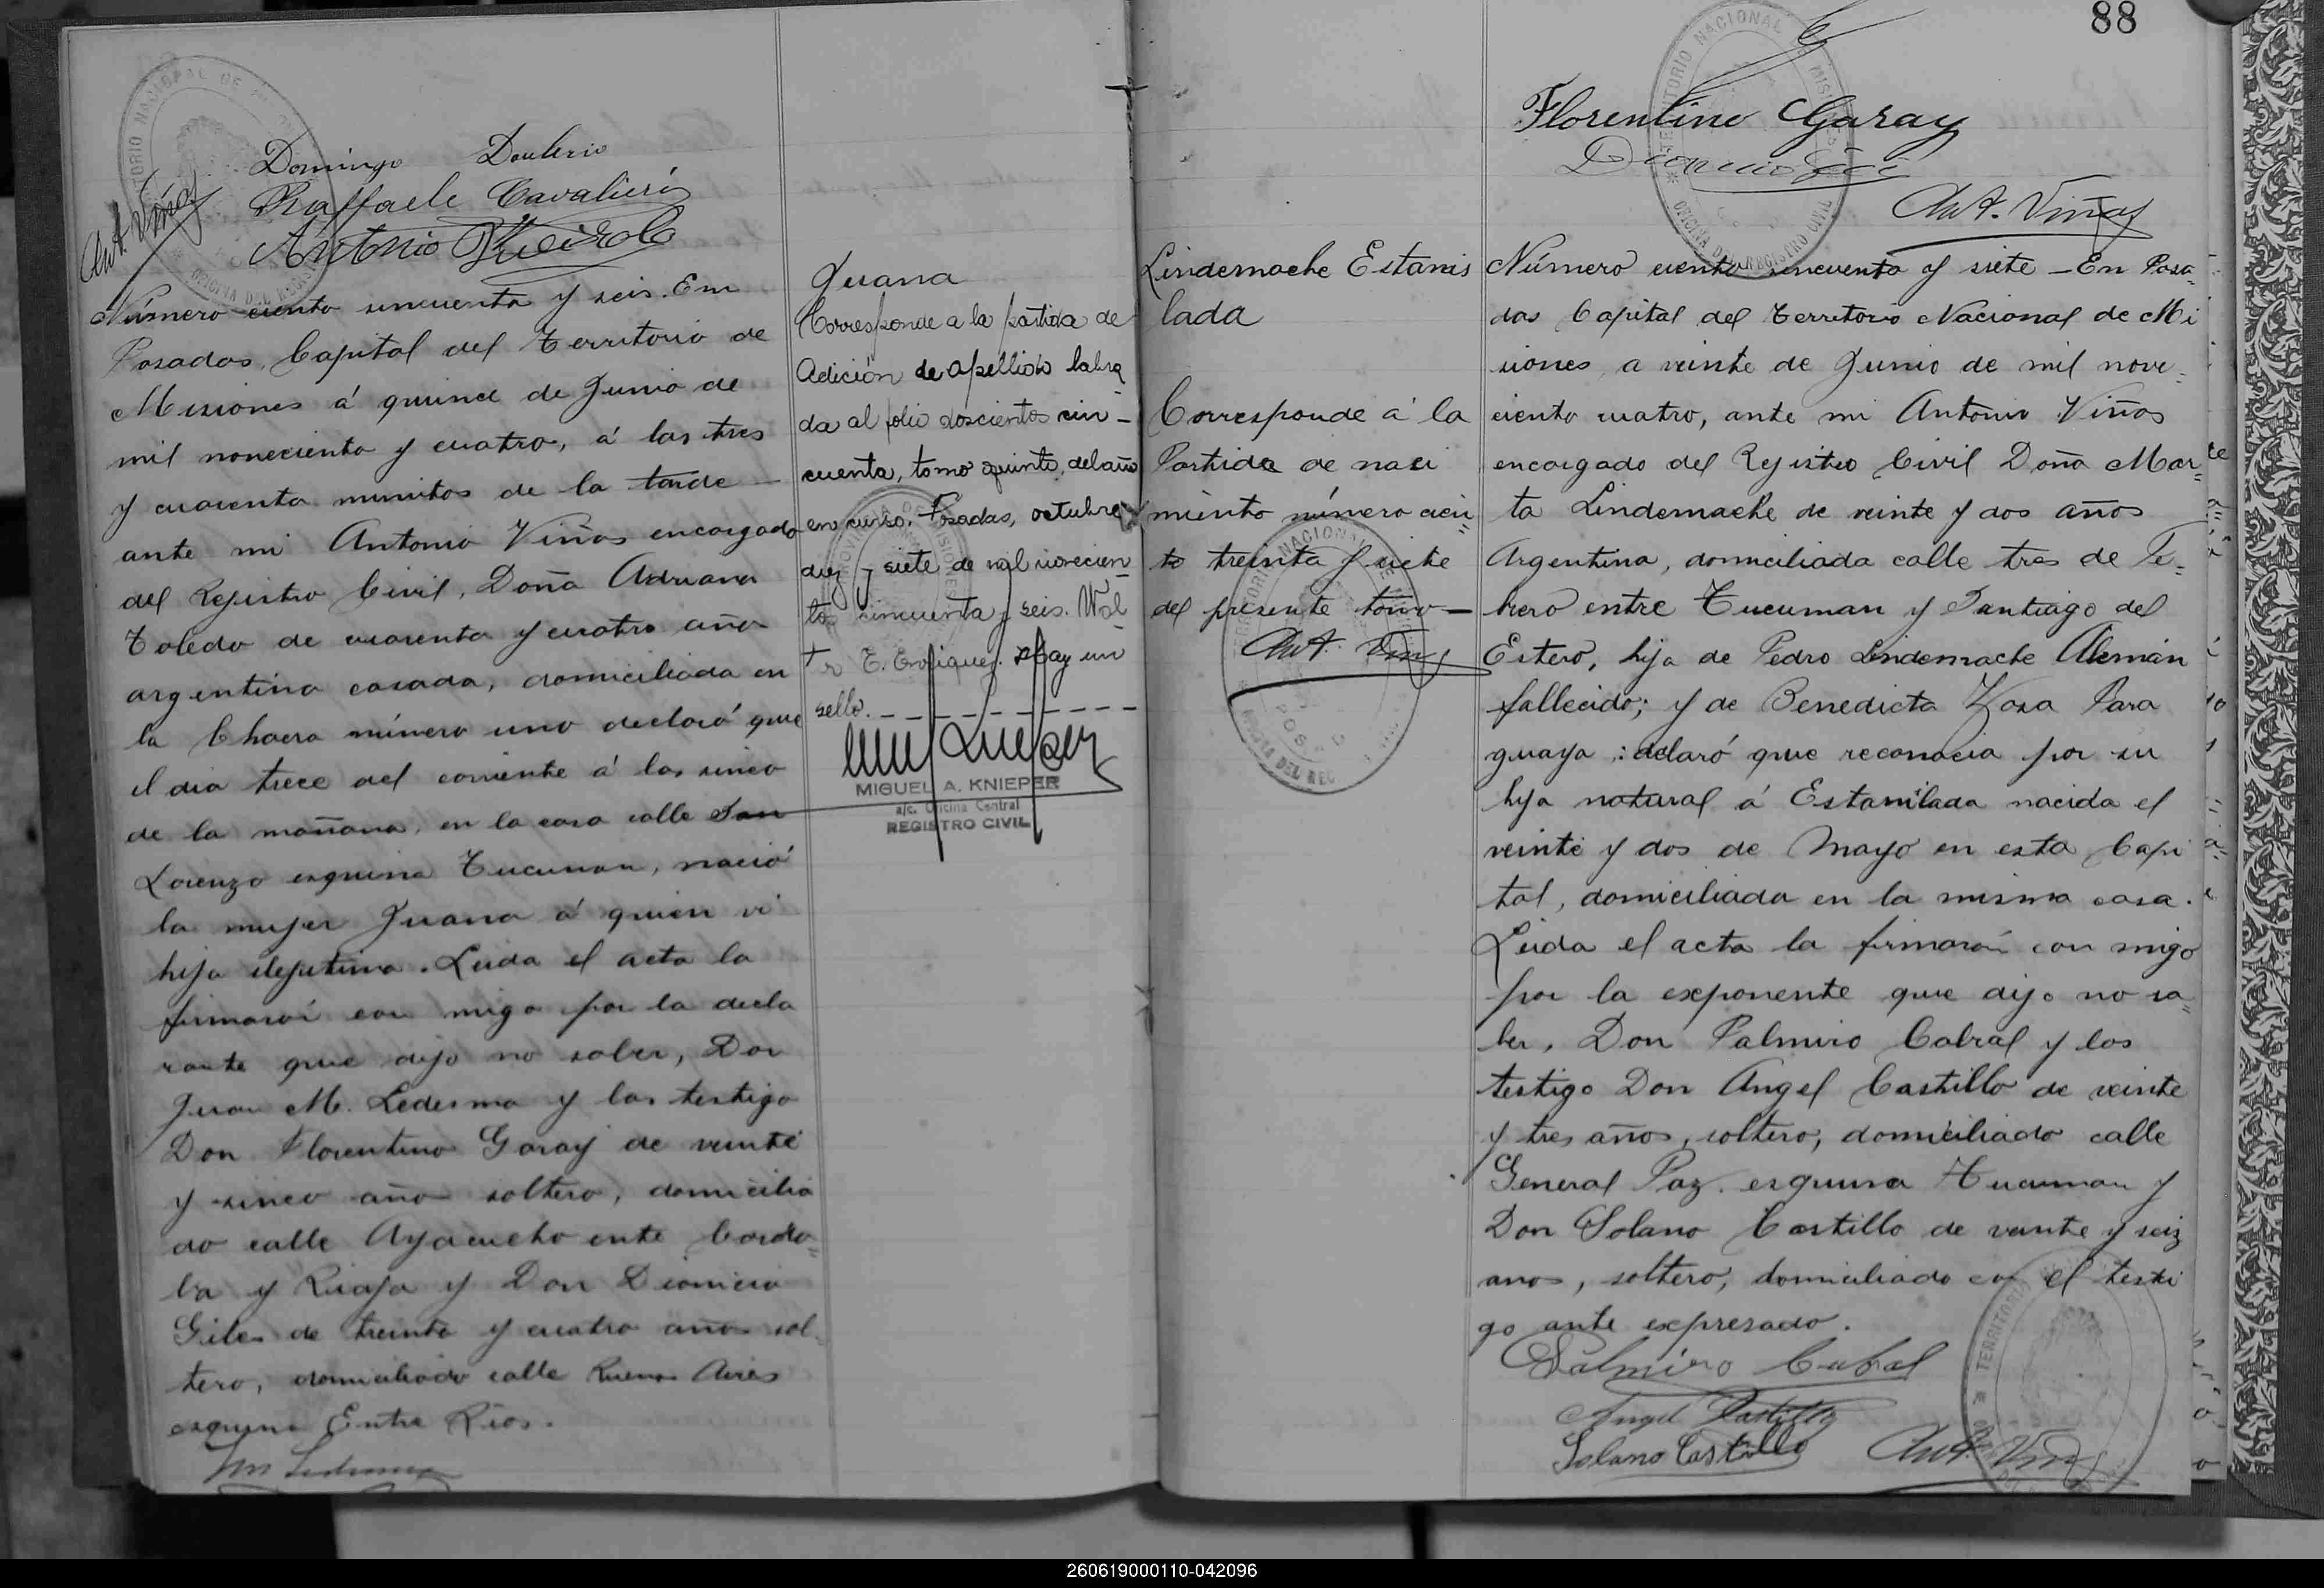 Domingo
Raffaele Cavalieri
Antonio
Ant. Viñas
Número ciento sincuenta y seis. En
Posadas, Capital del Territorio de
Misiones á quince de Junio de
mil noveciento y cuatro, á las tres
y cuarenta minutos de la tarde —
ante mi Antonio Viñas encargado
del Registro Civil, Doña Adriana
Toledo de cuarenta y cuatro años
argentina casada, domiciliada en
la Chacra número uno declaró que
el dia trece del corriente á las sinco
de la mañana, en la casa calle San
Lorenzo esquina Tucuman, nació
la mujer Juana á quien vi
hija ilejitima. Leida el acta la
firmarón con migo por la decla
rante que dijo no saber, Don
Juan M. Ledesma y los testigo
Don Florentino Garay de veinte
y sinco año soltero, domicilia
do calle Ayacucho ente Cordo=
ba y Rioja y Don Dionicio
Giles de treinta y cuatro años sol
tero, domiciliado calle Buenos Aires
esquina Entre Rios.
Juana
Corresponde a la partida de
Adición de apellido labra
da al folio doscientos cin-
cuenta, tomo quinto, del año
en curso. Posadas, octubre
diez y siete de mil novecien-
tos cincuenta y seis. Wal-
T. Enriquez. Hay un
sello. — — — — — — —
MIGUEL A. KNIEPER
a/c. Oficina Central
REGISTRO CIVIL
88
Florentino Garay
Ant. Viñas
Lindemache Estanis
lada
Corresponde á la
Partida de naci
miento número cien=
to treinta y siete
del presente tomo—
Ant. Viñas
Número ciento sincuenta y siete — En Posa=
das Capital del Territorio Nacional de Mi
siones, a veinte de Junio de mil nove=
ciento cuatro, ante mi Antonio Viñas
encargado del Rejistro Civil Doña Mar=
ta Lindemache de veinte y dos años
Argentina, domiciliada calle tres de Fe=
brero entre Tucuman y Santiago del
Estero, hija de Pedro Lindemache Alemán
fallecido; y de Benedicta Para
guaya: declaró que reconocia por su
hija natural á Estanilada nacida el
veinte y dos de Mayo en esta Capi
tal, domiciliada en la misma casa.
Leida el acta la firmarón con migo
por la exponente que dijo no sa=
ber, Don Palmiro Cabral y los
testigo Don Angel Castillo de veinte
y tres años, soltero, domiciliado calle
General Paz esquina Tucuman y
Don Solano Castillo de veinte y seiz
anos, soltero, domiciliado con el testi
go ante expresado.
Palmiro Cabral
Angel Castillo
Solano Castillo
Ant. Viñas
260619000110-042096